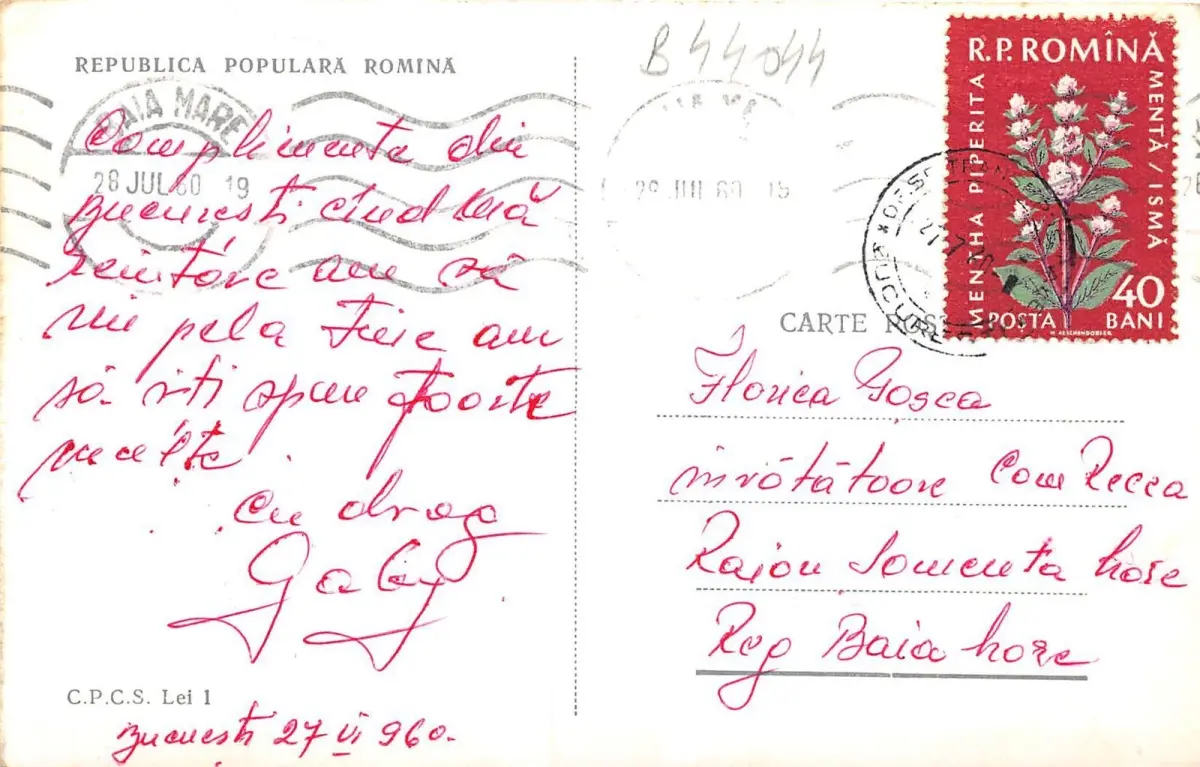 REPUBLICA POPULARĂ ROMÎNĂ
B 44044
BAIA MARE
28 JUL 60 19
Complimente din
București cînd mă
reintorc am să
vin pela Tine am
să-ți spun foarte
multe.
cu drag
Gaby
C.P.C.S. Lei 1
București 27 VI 960.
R.P.ROMÎNĂ
MENTHA PIPERITA
MENTĂ / ISMĂ
40
POSTA BANI
BUCUREȘTI
CARTE POȘTALĂ
Florica Goșca
învătătoore Com Recea
Raion Șomcuta Mare
Reg Baia Mare